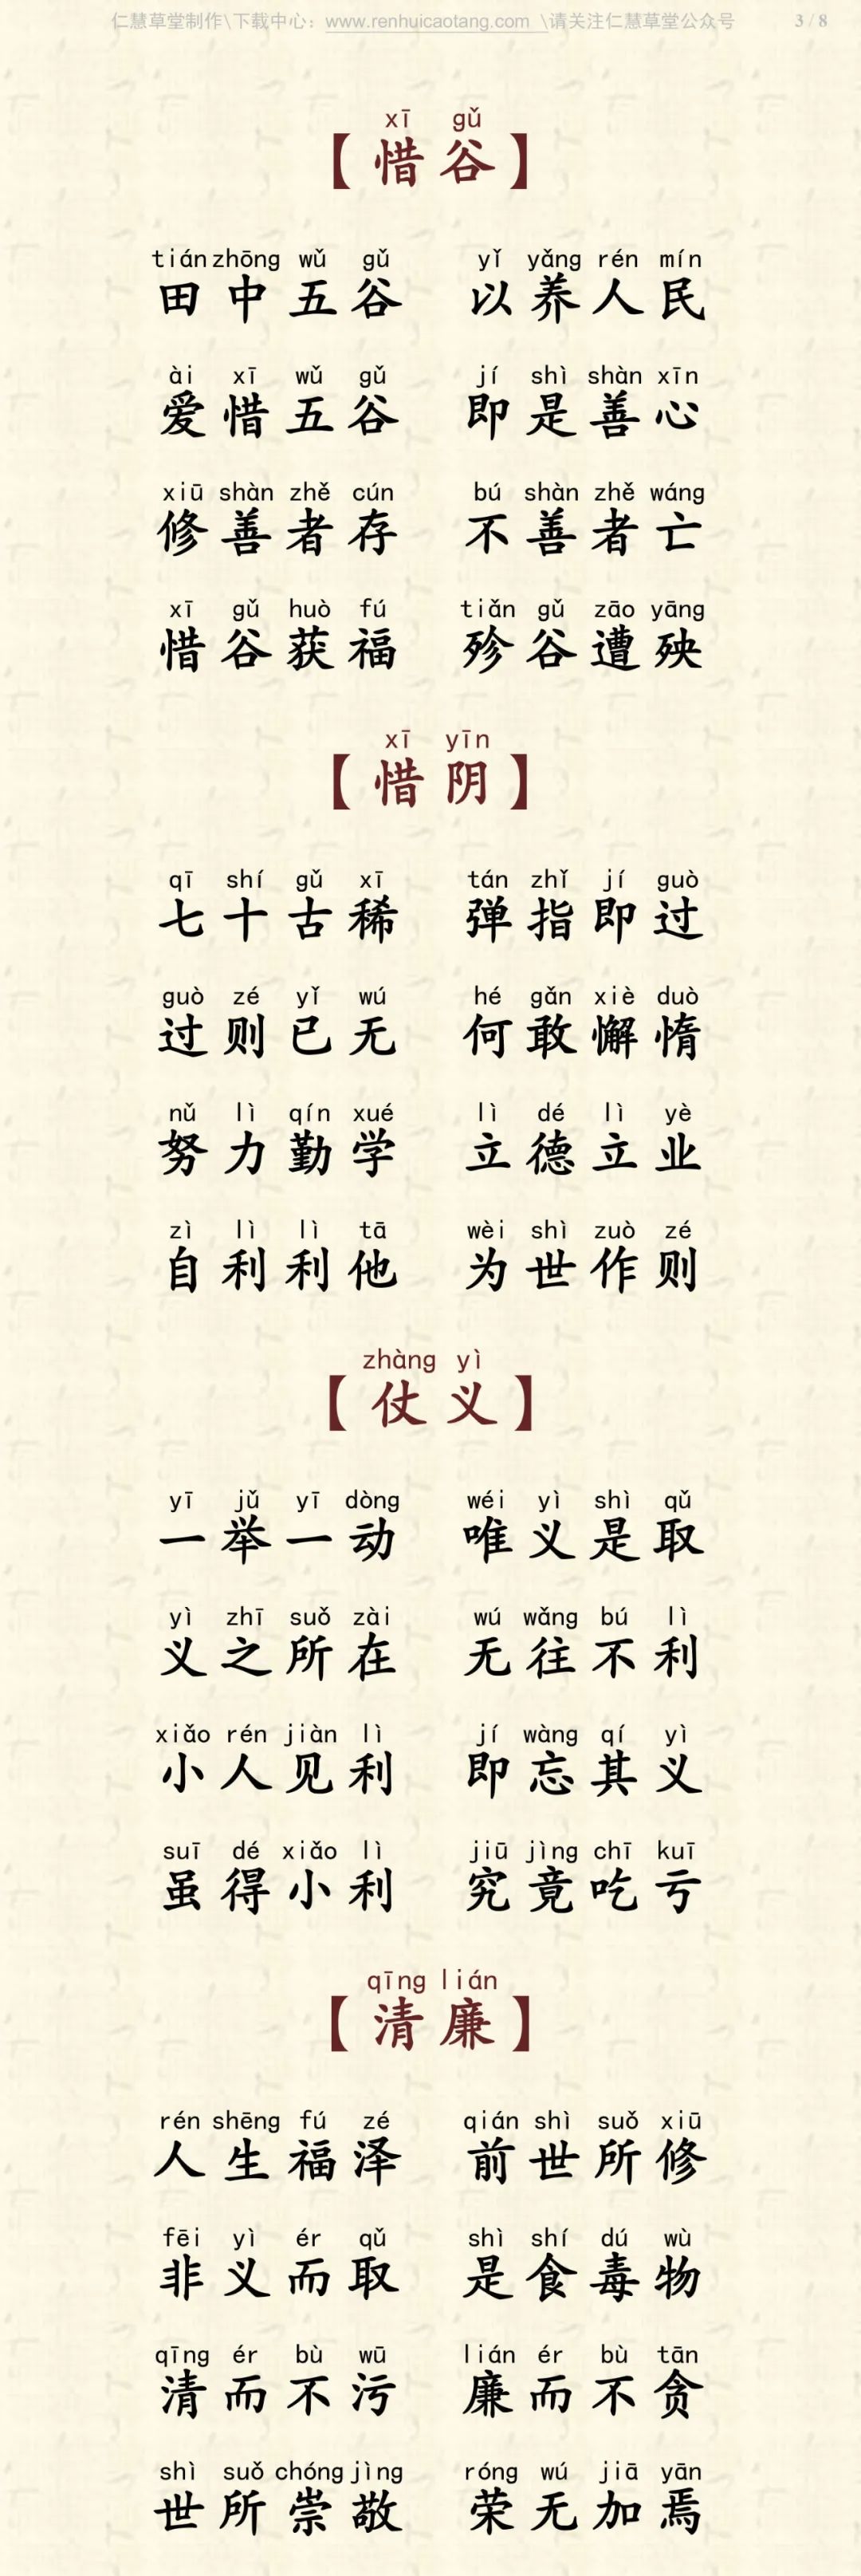 仁慧草堂制作\下载中心：www.renhuicaotang.com \请关注仁慧草堂公众号 3 / 8
xī gǔ
【惜谷】
tián zhōng wǔ gǔ yǐ yǎng rén mín
田中五谷 以养人民
ài xī wǔ gǔ jí shì shàn xīn
爱惜五谷 即是善心
xiū shàn zhě cún bú shàn zhě wáng
修善者存 不善者亡
xī gǔ huò fú tiǎn gǔ zāo yāng
惜谷获福 殄谷遭殃
xī yīn
【惜阴】
qī shí gǔ xī tán zhǐ jí guò
七十古稀 弹指即过
guò zé yǐ wú hé gǎn xiè duò
过则已无 何敢懈惰
nǔ lì qín xué lì dé lì yè
努力勤学 立德立业
zì lì lì tā wèi shì zuò zé
自利利他 为世作则
zhàng yì
【仗义】
yī jǔ yī dòng wéi yì shì qǔ
一举一动 唯义是取
yì zhī suǒ zài wú wǎng bú lì
义之所在 无往不利
xiǎo rén jiàn lì jí wàng qí yì
小人见利 即忘其义
suī dé xiǎo lì jiū jìng chī kuī
虽得小利 究竟吃亏
qīng lián
【清廉】
rén shēng fú zé qián shì suǒ xiū
人生福泽 前世所修
fēi yì ér qǔ shì shí dú wù
非义而取 是食毒物
qīng ér bù wū lián ér bù tān
清而不污 廉而不贪
shì suǒ chóng jìng róng wú jiā yān
世所崇敬 荣无加焉